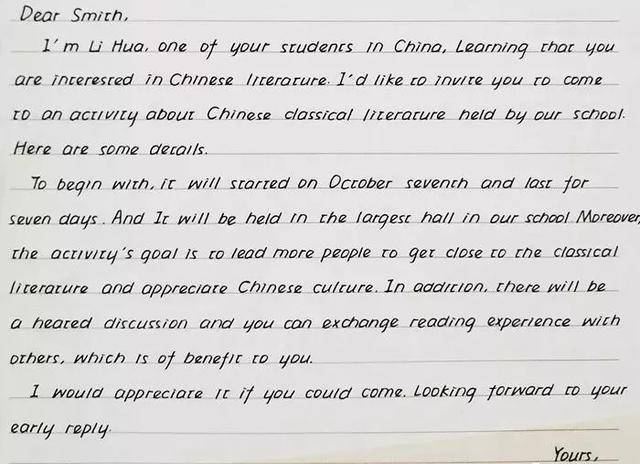 Dear Smith,
I'm Li Hua, one of your students in China, Learning that you
are interested in Chinese literature. I'd like to invite you to come
to an activity about Chinese classical literature held by our school.
Here are some details.
To begin with, it will started on October seventh and last for
seven days. And It will be held in the largest hall in our school Moreover,
the activity's goal is to lead more people to get close to the classical
literature and appreciate Chinese culture. In addition, there will be
a heated discussion and you can exchange reading experience with
others, which is of benefit to you.
I would appreciate it if you could come. Looking forward to your
early reply.
Yours,